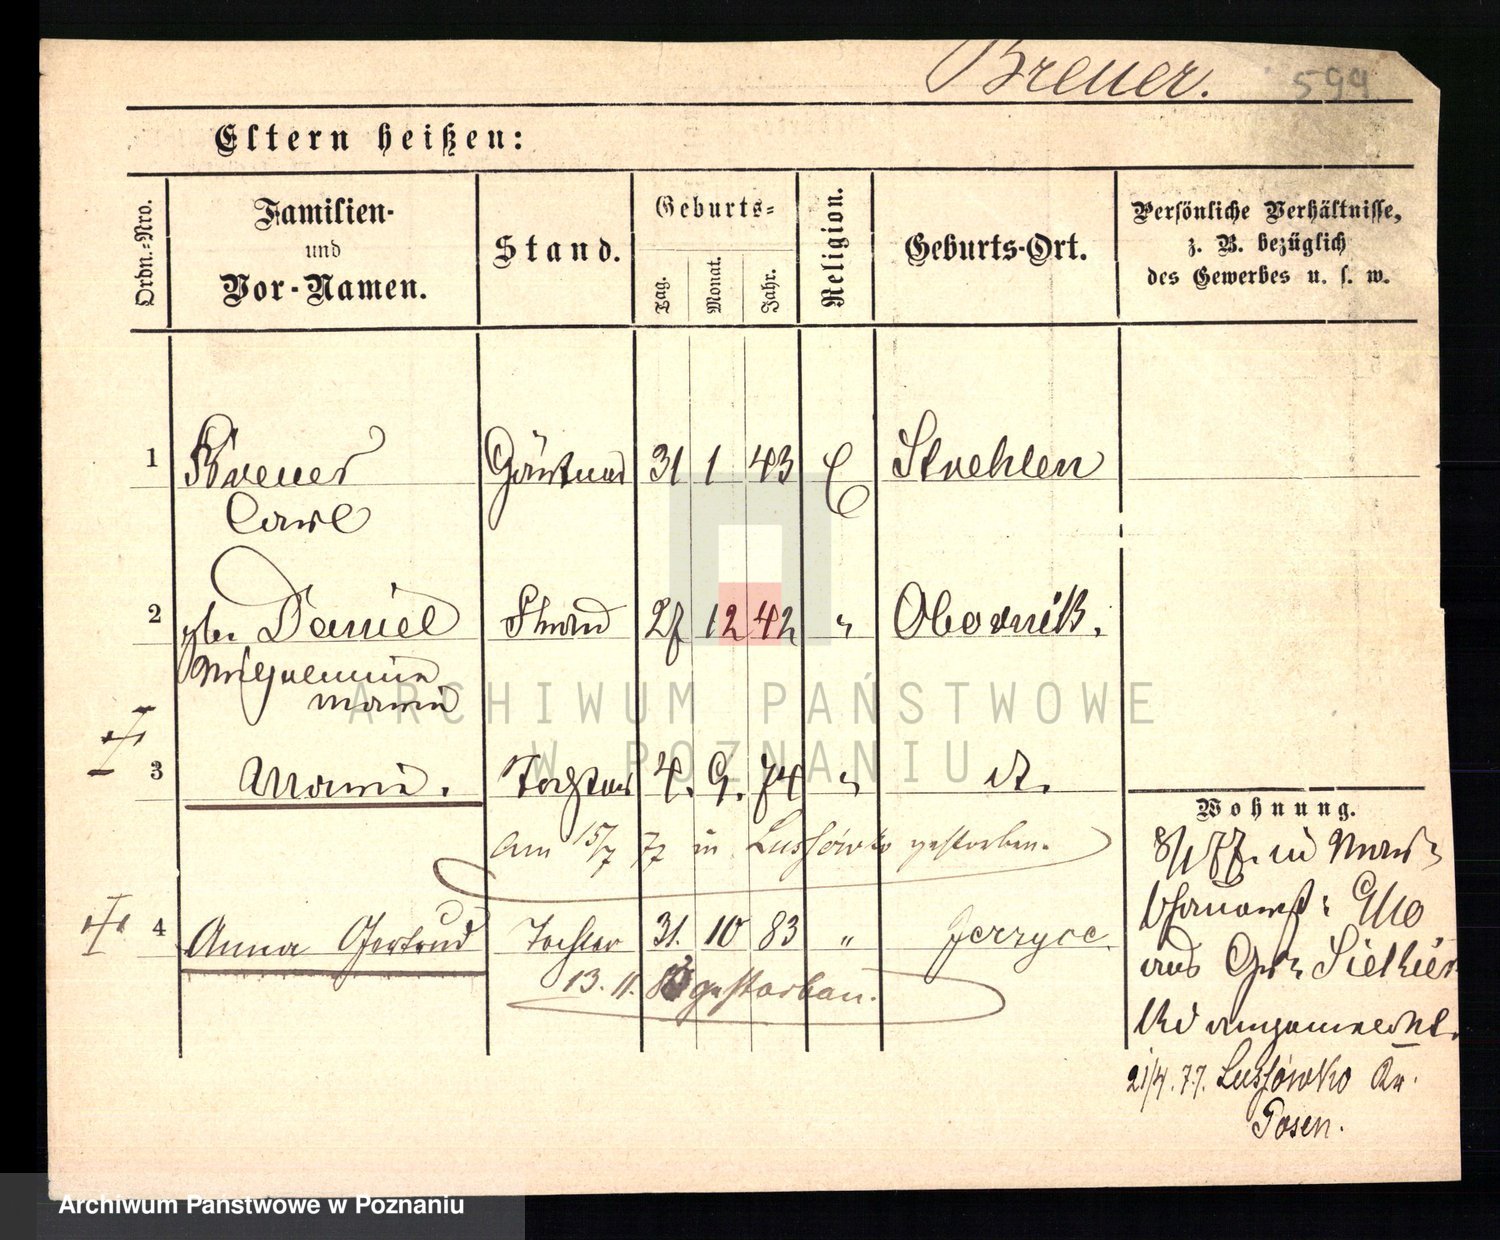 Breuer. 599
Eltern heißen:
Ordn.-Nro.
Familien-
und
Vor-Namen.
Stand.
Geburts-
Tag. Monat. Jahr.
Religion.
Geburts-Ort.
Persönliche Verhältnisse,
z. B. bezüglich
des Gewerbes u. s. w.
1 Breuer Gärtner 31 1 43 C Strehlen
Carl
2 gbn Daniel Frau 27 12 42 " Obornik.
Wilhelmine
Maria
3 Maria. Tochter 4. 9. 74 " dt.
am 15/7 77 in Lussówko gestorben.
4 Anna Gertrud Tochter 31. 10 83 " Jerzyce.
13. 11. gestorben.
Wohnung.
8/1 77. in
aus
angemeldet.
21/4. 77. Lussówko Kr.
Posen.
ARCHIWUM PAŃSTWOWE
W POZNANIU
Archiwum Państwowe w Poznaniu